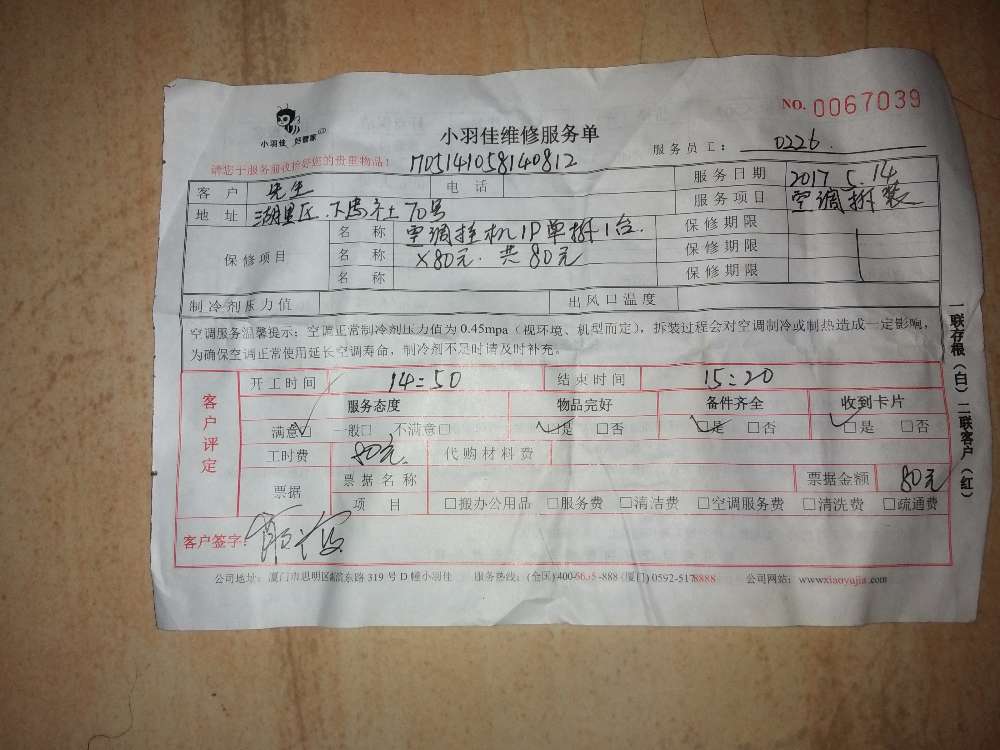 小羽佳 好管家
小羽佳维修服务单
NO. 0067039
请您于服务前收拾好您的贵重物品!
1705141058140812
服务员工: 0226.
客户 先生 电话 服务日期 2017 5.14
地址 湖里区.下忠社70号 服务项目 空调拆装
保修项目 名称 空调挂机1P单拆1台. 保修期限
名称 ×80元. 共80元 保修期限
名称 保修期限
制冷剂压力值 出风口温度
空调服务温馨提示: 空调正常制冷剂压力值为 0.45mpa (视环境、机型而定), 拆装过程会对空调制冷或制热造成一定影响,
为确保空调正常使用延长空调寿命, 制冷剂不足时请及时补充。
客户评定
开工时间 14:50 结束时间 15:20
服务态度 物品完好 备件齐全 收到卡片
满意□ 一般□ 不满意□ □是 □否 □是 □否 □是 □否
工时费 80元. 代购材料费
票据 票据名称 票据金额 80元
项目 □搬办公用品 □服务费 □清洁费 □空调服务费 □清洗费 □疏通费
客户签字:
公司地址: 厦门市思明区 东路 319 号 D 幢小羽佳 服务热线: (全国) 400-6655-888 (厦门) 0592-5178888 公司网站: www.xiaoyujia.com
一联存根(白) 二联客户(红)